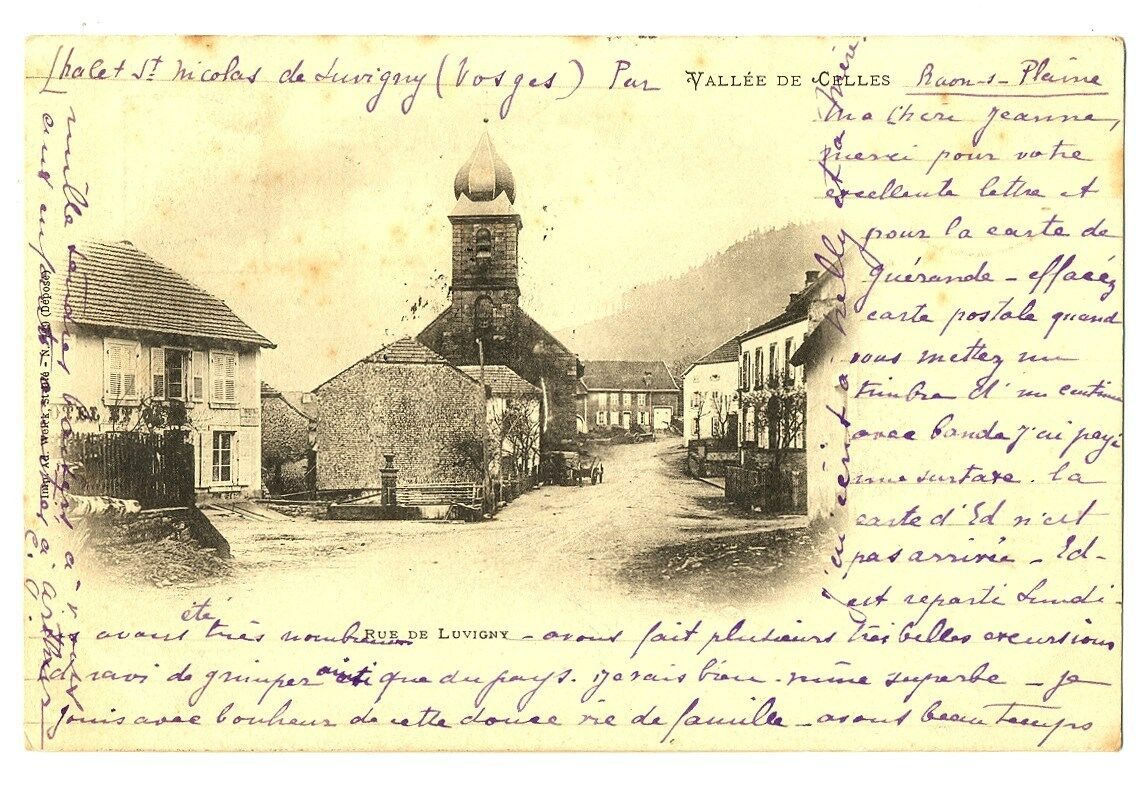 Chalet St Nicolas de Luvigny (Vosges) Par
VALLÉE DE CELLES
Raon-s-Plaine
Ma Chère Jeanne,
merci pour votre
excellente lettre et
pour la carte de
Guérande - effacez
carte postale quand
vous mettez un
timbre d'un centime
avec bande j'ai payé
une surtaxe. la
carte d'Ed n'est
pas arrivée - Ed-
est reparti Lundi-
avons été très nombreux - avons fait plusieurs très belles excursions
ravi de grimper ainsi que du pays. pays superbe - je
jouis avec bonheur de cette douce vie de famille - avons beau temps
RUE DE LUVIGNY
mille
à vous
aux enfants
à Arthur
C.
j'écrirai à Nelly et à mère.
(Déposé)